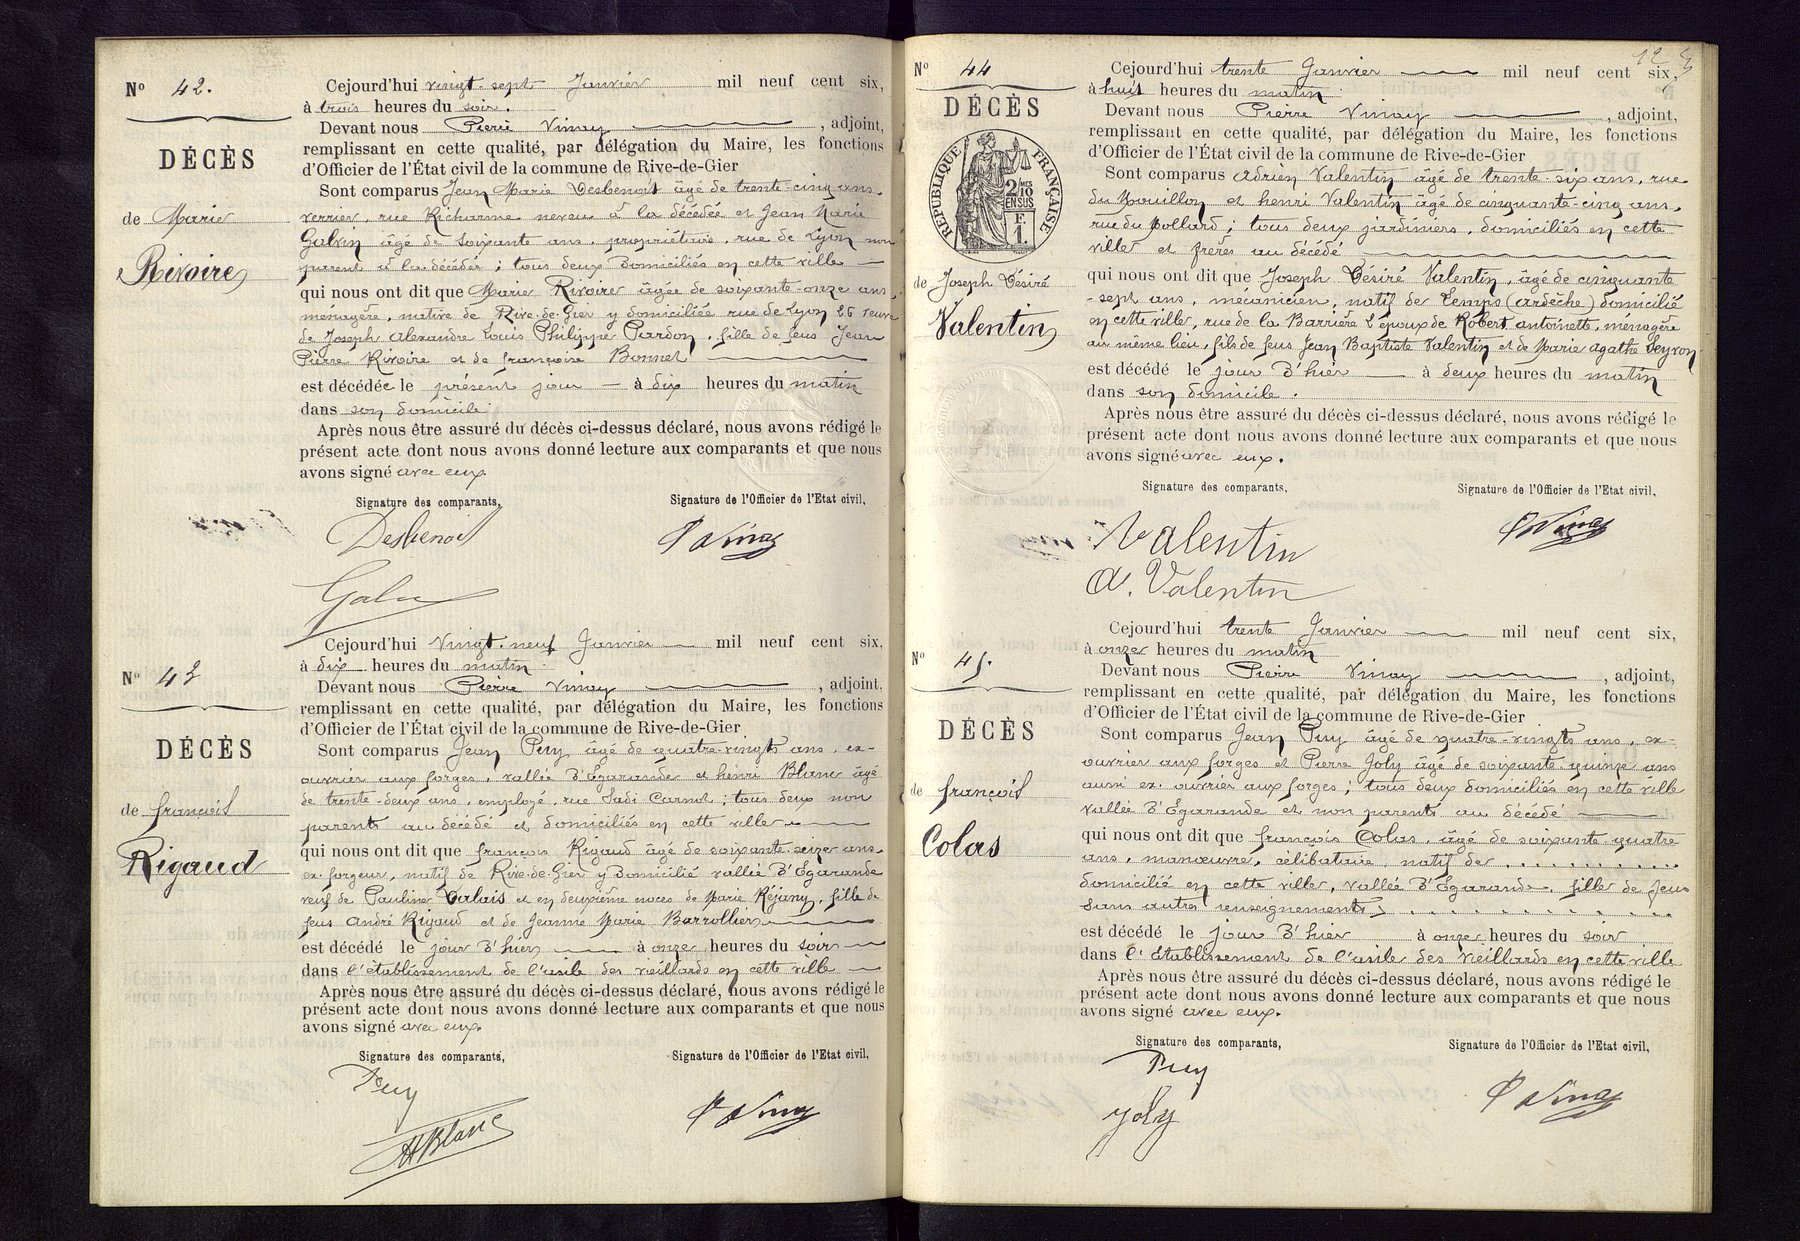 N° 42.
DÉCÈS
de Marie
Rivoire
Cejourd'hui vingt-sept Janvier mil neuf cent six,
à trois heures du soir.
Devant nous Pierre Vinay, adjoint,
remplissant en cette qualité, par délégation du Maire, les fonctions
d'Officier de l'État civil de la commune de Rive-de-Gier
Sont comparus Jean Marie Desbenoit âgé de trente-cinq ans,
verrier, rue Richarme neveu à la décédée et Jean Marie
âgé de soixante ans, propriétaire, rue de Lyon non
parent à la décédée ; tous deux domiciliés en cette ville
qui nous ont dit que Marie Rivoire âgée de soixante-onze ans,
ménagère, native de Rive-de-Gier y domiciliée rue de Lyon 26 veuve
de Joseph Alexandre Louis Philippe Pardon, fille de feus Jean
Pierre Rivoire et de françoise Bonnet
est décédée le présent jour à dix heures du matin
dans son domicile
Après nous être assuré du décès ci-dessus déclaré, nous avons rédigé le
présent acte dont nous avons donné lecture aux comparants et que nous
avons signé avec eux.
Signature des comparants, Signature de l'Officier de l'Etat civil,
Desbenoit P Vinay
N° 43
DÉCÈS
de françois
Rigaud
Cejourd'hui Vingt-neuf Janvier mil neuf cent six,
à dix heures du matin
Devant nous Pierre Vinay, adjoint,
remplissant en cette qualité, par délégation du Maire, les fonctions
d'Officier de l'État civil de la commune de Rive-de-Gier
Sont comparus Jean Puy âgé de quatre-vingts ans, ex-
ouvrier aux forges, vallée d'Égarande et henri Blanc âgé
de trente-deux ans, employé, rue Sadi Carnot ; tous deux non
parents au décédé et domiciliés en cette ville
qui nous ont dit que françois Rigaud âgé de soixante-seize ans,
ex-forgeur, natif de Rive-de-Gier y domicilié vallée d'Égarande
veuf de Pauline et en deuxième noces de Marie Réjany, fille de
feus André Rigaud et de Jeanne Marie Barrollier
est décédé le jour d'hier à onze heures du soir
dans l'établissement de l'asile des vieillards en cette ville
Après nous être assuré du décès ci-dessus déclaré, nous avons rédigé le
présent acte dont nous avons donné lecture aux comparants et que nous
avons signé avec eux.
Signature des comparants, Signature de l'Officier de l'Etat civil,
Puy
HBlanc P Vinay
12
N° 44
DÉCÈS
RÉPUBLIQUE FRANÇAISE
2 MES 10 EN SUS
F. 1.
de Joseph Désiré
Valentin
Cejourd'hui trente Janvier mil neuf cent six,
à huit heures du matin
Devant nous Pierre Vinay, adjoint,
remplissant en cette qualité, par délégation du Maire, les fonctions
d'Officier de l'État civil de la commune de Rive-de-Gier
Sont comparus Adrien Valentin âgé de trente-six ans, rue
du Mouillon et henri Valentin âgé de cinquante-cinq ans,
rue du Mollard ; tous deux jardiniers, domiciliés en cette
ville et frères au décédé
qui nous ont dit que Joseph Désiré Valentin, âgé de cinquante
-sept ans, mécanicien, natif de Lemps (ardèche) domicilié
en cette ville, rue de la Barrière 2 époux de Robert antoinette, ménagère
au même lieu, fils de feus Jean Baptiste Valentin et de Marie agathe Seyron
est décédé le jour d'hier à deux heures du matin
dans son domicile.
Après nous être assuré du décès ci-dessus déclaré, nous avons rédigé le
présent acte dont nous avons donné lecture aux comparants et que nous
avons signé avec eux.
Signature des comparants, Signature de l'Officier de l'Etat civil,
Valentin P Vinay
A. Valentin
N° 45.
DÉCÈS
de françois
Colas
Cejourd'hui trente Janvier mil neuf cent six,
à onze heures du matin
Devant nous Pierre Vinay, adjoint,
remplissant en cette qualité, par délégation du Maire, les fonctions
d'Officier de l'État civil de la commune de Rive-de-Gier
Sont comparus Jean Puy âgé de quatre-vingts ans, ex-
ouvrier aux forges et Pierre Joly âgé de soixante-quinze ans
aussi ex-ouvrier aux forges ; tous deux domiciliés en cette ville
vallée d'Égarande et non parents au décédé
qui nous ont dit que françois Colas, âgé de soixante-quatre
ans, manœuvre, célibataire, natif de . . . . . . . . . .
domicilié en cette ville, vallée d'Égarande, fille de feus
(sans autres renseignements) . . . . . . . . . .
est décédé le jour d'hier à onze heures du soir
dans l'Etablissement de l'asile des vieillards en cette ville
Après nous être assuré du décès ci-dessus déclaré, nous avons rédigé le
présent acte dont nous avons donné lecture aux comparants et que nous
avons signé avec eux.
Signature des comparants, Signature de l'Officier de l'Etat civil,
Puy
Joly P Vinay